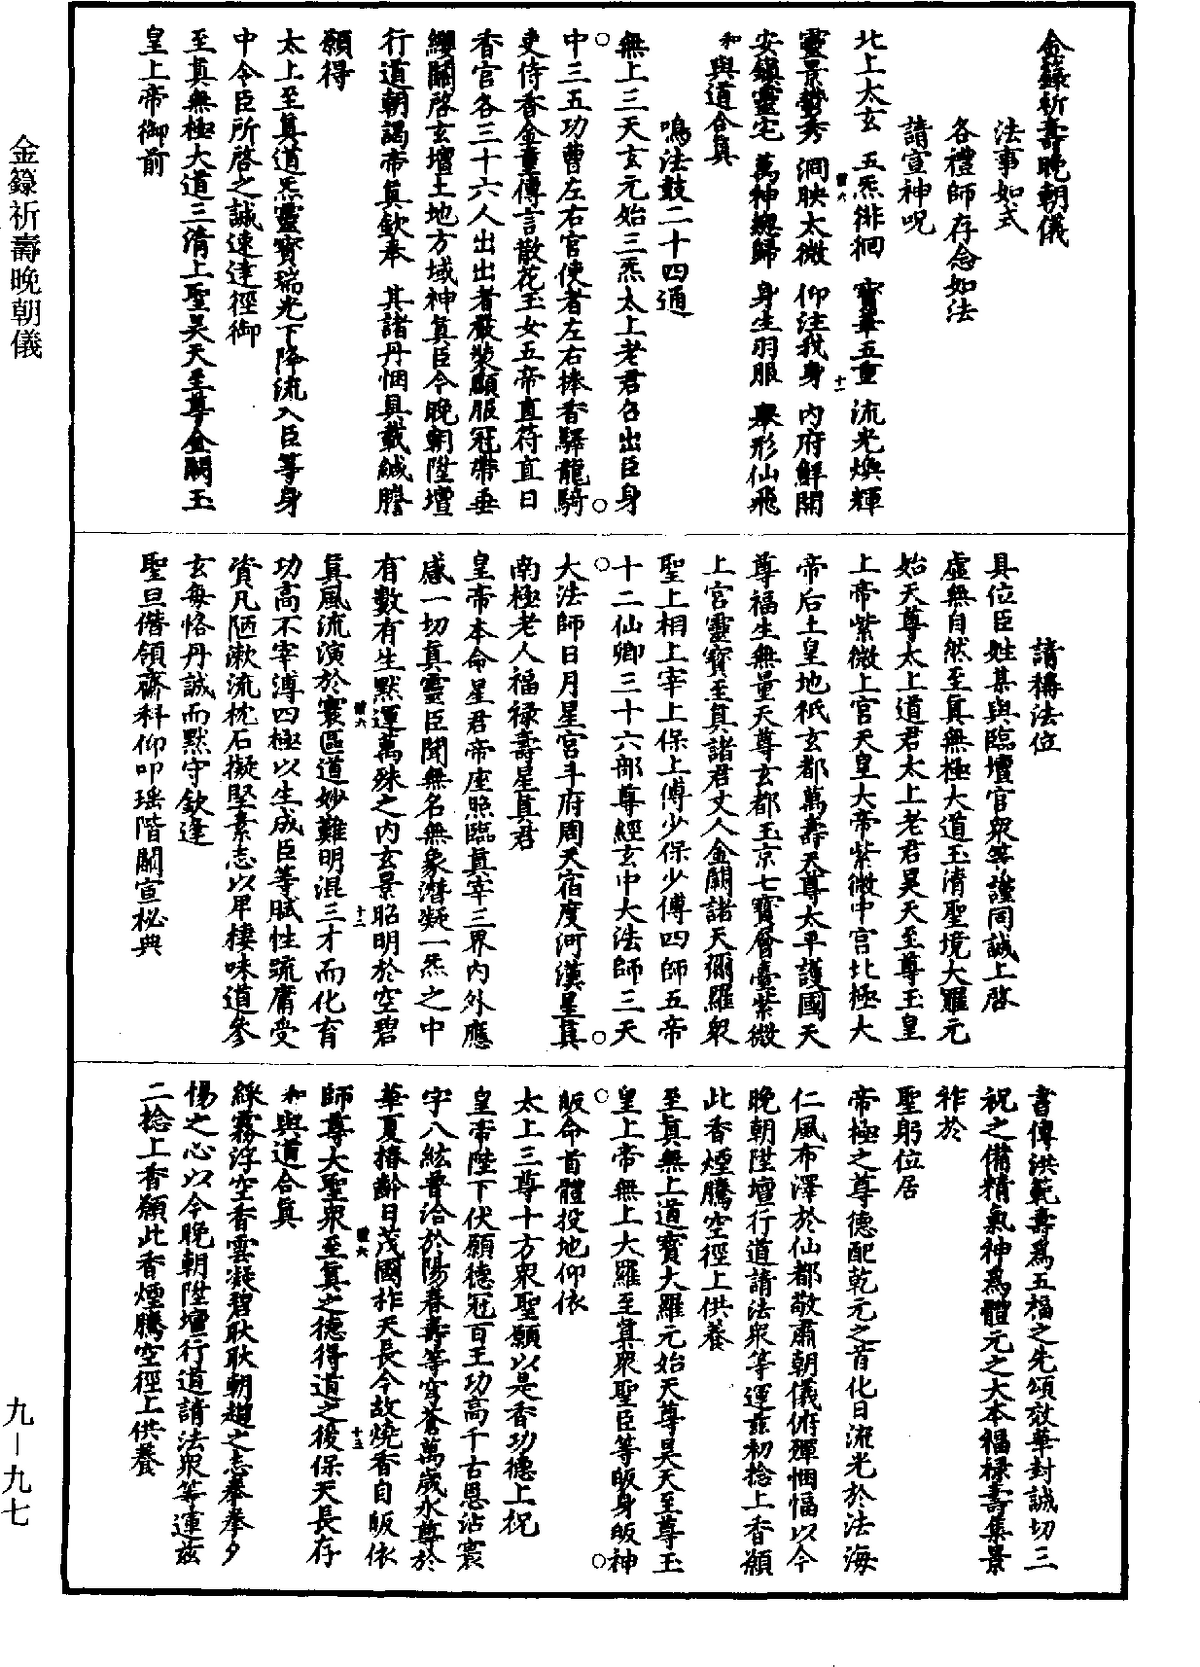 金籙祈壽晚朝儀
法事如式
各禮師存念如法
請宣神呪
北上太玄　五炁徘徊　寶華五重　流光煥輝
靈景鬱秀　洞映太微　仰注我身　內府鮮開
安鎮靈宅　萬神總歸　身生羽服　舉形仙飛
和與道合眞
鳴法鼓二十四通
無上三天玄元始三炁太上老君召出臣身
中三五功曹左右官使者左右捧香驛龍騎
吏侍香金童傳言散花玉女五帝直符直日
香官各三十六人出出者嚴裝顯服冠帶垂
纓關啓玄壇土地方域神眞臣今晚朝陞壇
行道朝謁帝眞欽奉　其諸丹悃具載緘謄
願得
太上至眞道炁靈寶瑞光下降流入臣等身
中令臣所啓之誠速達徑御
至眞無極大道三清上聖昊天至尊金闕玉
皇上帝御前
請稱法位
具位臣姓某與臨壇官衆等謹同誠上啓
虛無自然至眞無極大道玉清聖境大羅元
始天尊太上道君太上老君昊天至尊玉皇
上帝紫微上宮天皇大帝紫微中宮北極大
帝后土皇地祇玄都萬壽天尊太平護國天
尊福生無量天尊玄都玉京七寶層臺紫微
上宮靈寶至眞諸君丈人金闕諸天彌羅衆
聖上相上宰上保上傅少保少傅四師五帝
十二仙卿三十六部尊經玄中大法師三天
大法師日月星宮斗府周天宿度河漢星眞
南極老人福祿壽星眞君
皇帝本命星君帝座照臨眞宰三界內外應
感一切眞靈臣聞無名無象潛凝一炁之中
有數有生默運萬殊之內玄景昭明於空碧
眞風流演於寰區道妙難明混三才而化育
功高不宰溥四極以生成臣等賦性疏庸受
資凡陋漱流枕石擬堅素志以甲棲味道參
玄每恪丹誠而默守欽逢
聖旦僭領齋科仰叩瑤階闕宣祕典
書傳洪範壽爲五福之先頌效華封誠切三
祝之備精氣神爲體元之大本福祿壽集景
祚於
聖躬位居
帝極之尊德配乾元之首化日流光於法海
仁風布澤於仙都敬肅朝儀俯殫悃愊以今
晚朝陞壇行道請法衆等運茲初捻上香願
此香煙騰空徑上供養
至眞無上道寶大羅元始天尊昊天至尊玉
皇上帝無上大羅至眞衆聖臣等皈身皈神
皈命首體投地仰依
太上三尊十方衆聖願以是香功德上祝
皇帝陛下伏願德冠百王功高千古恩沾寰
宇八紘普洽於陽春壽等穹蒼萬歲永尊於
華夏椿齡日茂國祚天長今故燒香自皈依
師尊大聖衆至眞之德得道之後保天長存
和與道合眞
綵霧浮空香雲凝碧耿耿朝趨之志拳拳夕
惕之心以今晚朝陞壇行道請法衆等運茲
二捻上香願此香煙騰空徑上供養
金籙祈壽晚朝儀
九－九七